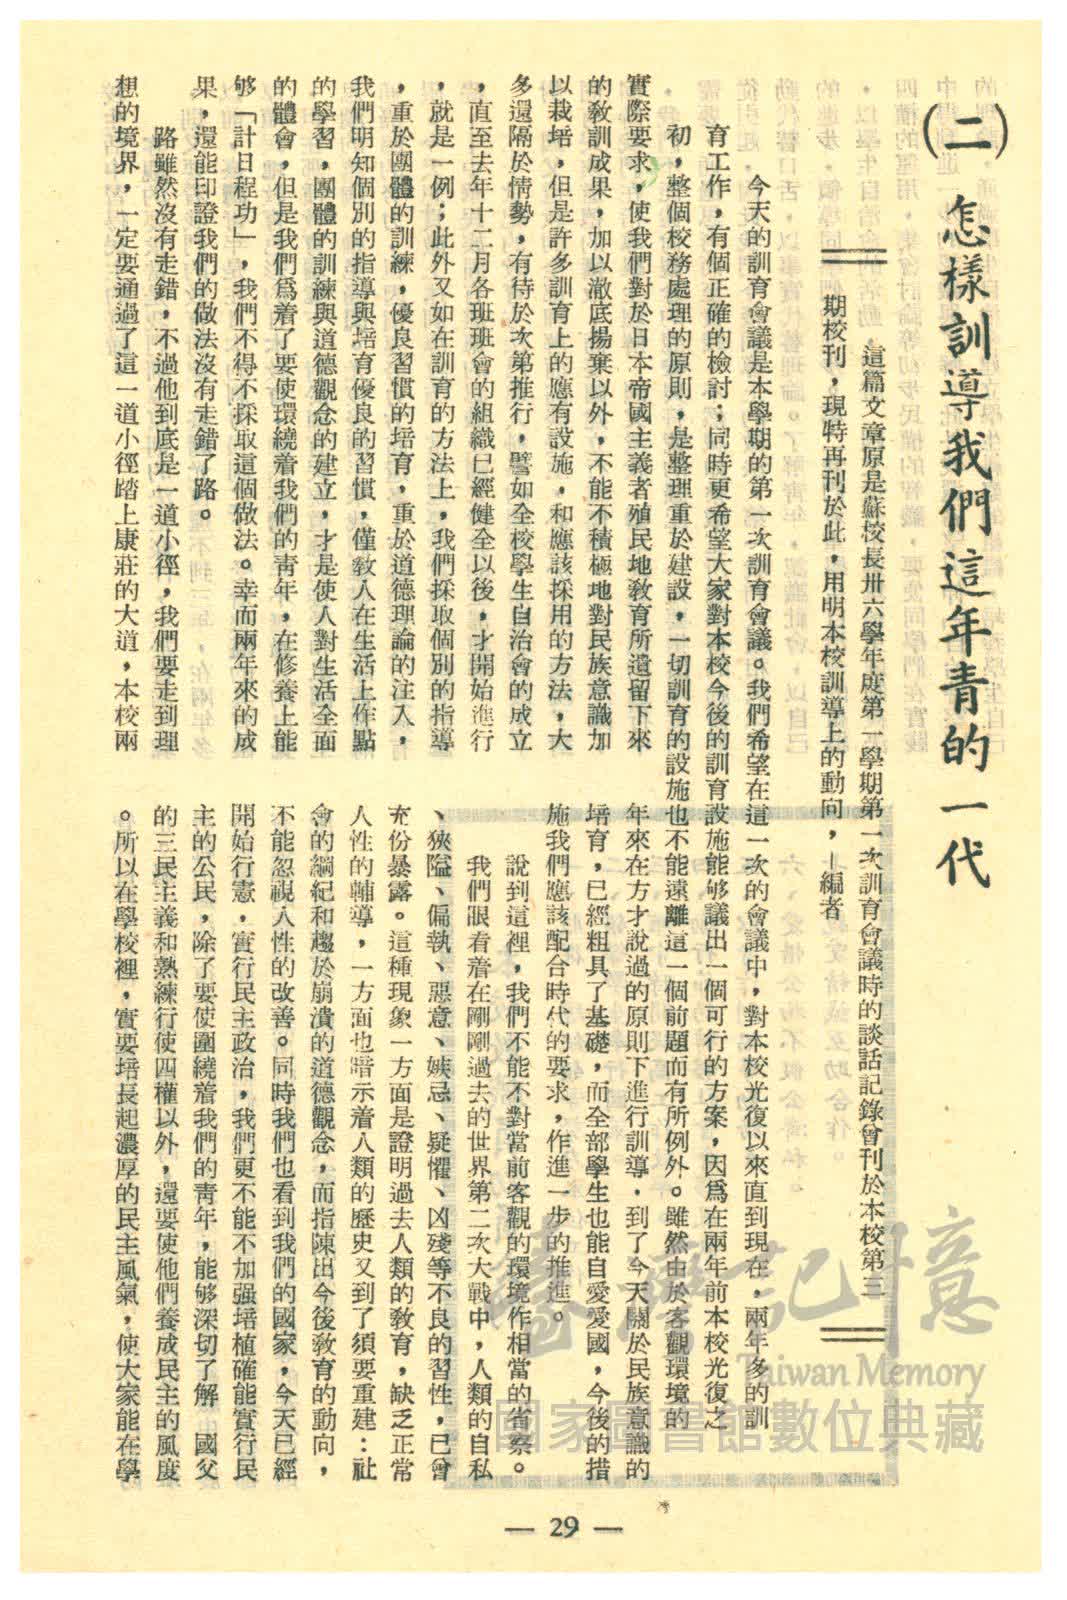 (二) 怎樣訓導我們這年青的一代
這篇文章原是蘇校長卅六學年度第一學期第一次訓育會議時的談話記錄曾刊於本校第三
期校刊,現特再刊於此,用明本校訓導上的動向,—編者
今天的訓育會議是本學期的第一次訓育會議。我們希望在這一次的會議中,對本校光復以來直到現在,兩年多的訓
育工作,有個正確的檢討;同時更希望大家對本校今後的訓育設施能够議出一個可行的方案,因爲在兩年前本校光復之
初,整個校務處理的原則,是整理重於建設,一切訓育的設施也不能遠離這一個前題而有所例外。雖然由於客觀環境的
實際要求,使我們對於日本帝國主義者殖民地敎育所遺留下來
的敎訓成果,加以澈底揚棄以外,不能不積極地對民族意識加
以栽培,但是許多訓育上的應有設施,和應該採用的方法,大
多還隔於情勢,有待於次第推行,譬如全校學生自治會的成立
,直至去年十二月各班班會的組織已經健全以後,才開始進行
,就是一例;此外又如在訓育的方法上,我們採取個別的指導
,重於團體的訓練,優良習慣的培育,重於道德理論的注入,
我們明知個別的指導與培育優良的習慣,僅敎人在生活上作點
的學習,團體的訓練與道德觀念的建立,才是使人對生活全面
的體會,但是我們爲着了要使環繞着我們的靑年,在修養上能
够「計日程功」,我們不得不採取這個做法。幸而兩年來的成
果,還能印證我們的做法沒有走錯了路。
路雖然沒有走錯,不過他到底是一道小徑,我們要走到理
想的境界,一定要通過了這一道小徑踏上康莊的大道,本校兩
年來在方才說過的原則下進行訓導,到了今天關於民族意識的
培育,已經粗具了基礎,而全部學生也能自愛愛國,今後的措
施我們應該配合時代的要求,作進一步的推進。
說到這裡,我們不能不對當前客觀的環境作相當的省察。
我們眼看着在剛剛過去的世界第二次大戰中,人類的自私
、狹隘、偏執、惡意、嫉忌、疑懼、凶殘等不良的習性,已曾
充份暴露。這種現象一方面是證明過去人類的敎育,缺乏正常
人性的輔導,一方面也暗示着人類的歷史又到了須要重建:社
會的綱紀和趨於崩潰的道德觀念,而指陳出今後敎育的動向,
不能忽視人性的改善。同時我們也看到我們的國家,今天已經
開始行憲,實行民主政治,我們更不能不加强培植確能實行民
主的公民,除了要使圍繞着我們的靑年,能够深切了解 國父
的三民主義和熟練行使四權以外,還要使他們養成民主的風度
。所以在學校裡,實要培長起濃厚的民主風氣,使大家能在學
— 29 —
臺灣記憶
Taiwan Memory
國家圖書館數位典藏